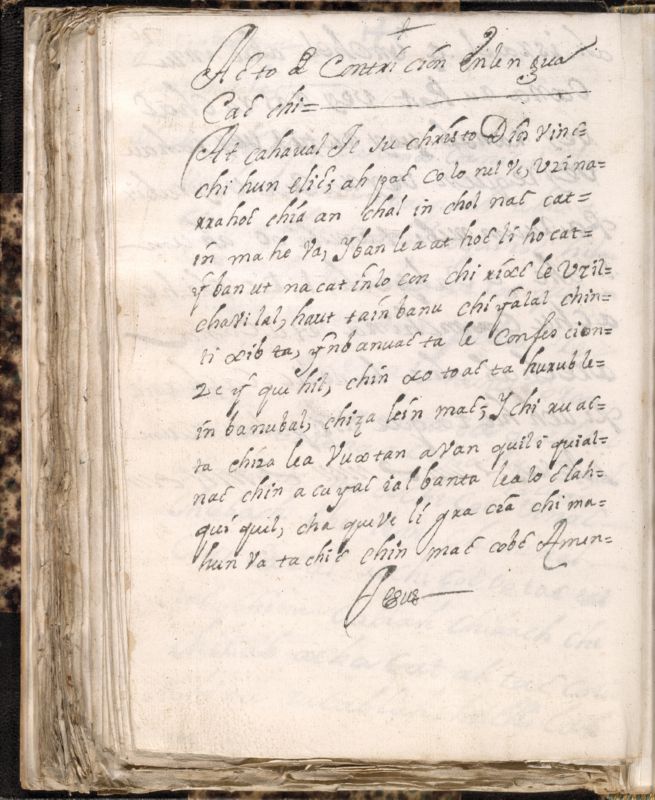 Acto de Contrición En lengua
Cacchi=
At cahaval Jesu christo Dios vinc=
chi hun elic; ah pac co lo nel ve, vrina=
xxahoc chia an chal in chol nac cat=
in ma he va, Yban le a at hoc li ho cat=
ÿ ban ut na cat inlo con chi xixc le vzil=
cha vi lal, haut ta in banu chi ÿalal chin=
ti oxib ta, ÿnbanuac ta le Confescion=
ze ÿ que hil, chin oxo toac ta huxuble=
in banubal, chiza lein mac; Y chi xu ac=
ta chiza le a vuoxtan a van quil i quial=
nac chin a cu yac ial banta lea lo clah=
qui quil, cha que ve li gra cia chi ma=
hun va ta chic chin mac cobc Amen=
Jesus